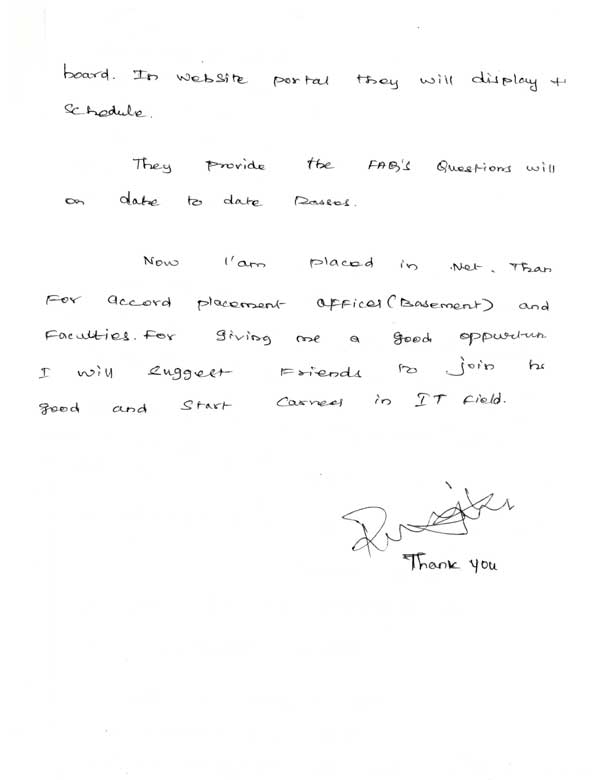 board. In website portal they will display t
schedule.
They provide the FAQ's Questions will
on date to date basses.
Now I'am placed in .Net. Than
For accord placement officer (Basement) and
Faculties. For giving me a good oppurtun
I will suggest Friends to join he
good and start Carreer in IT field.
Thank you